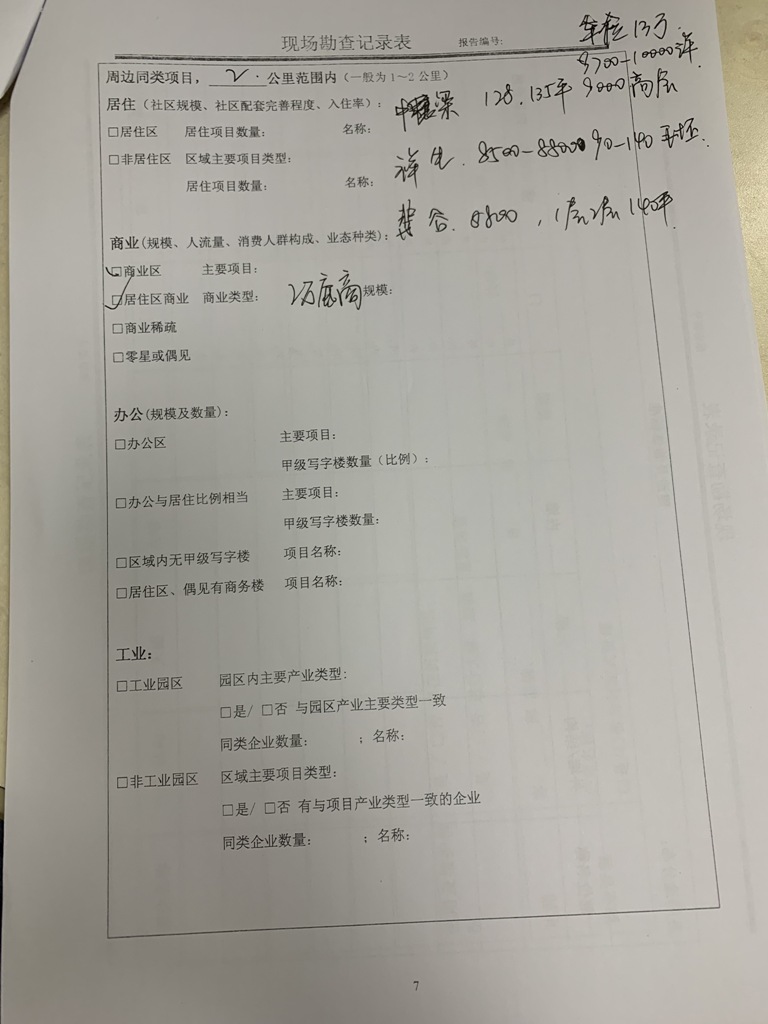 车位13万.
现场勘查记录表 报告编号:
8700-10000洋.
周边同类项目, 2. 公里范围内(一般为1~2公里)
居住(社区规模、社区配套完善程度、入住率): 中梁 128.135平 9000高层
□居住区 居住项目数量: 名称:
祥生. 8500-8800 90-140平
□非居住区 区域主要项目类型:
居住项目数量: 名称:
谷. 8800, 1层2层 140平.
商业(规模、人流量、消费人群构成、业态种类):
☑商业区 主要项目:
☑居住区商业 商业类型: 2万底商 规模:
□商业稀疏
□零星或偶见
办公(规模及数量):
□办公区 主要项目:
甲级写字楼数量(比例):
□办公与居住比例相当 主要项目:
甲级写字楼数量:
□区域内无甲级写字楼 项目名称:
□居住区、偶见有商务楼 项目名称:
工业:
□工业园区 园区内主要产业类型:
□是/ □否 与园区产业主要类型一致
同类企业数量: ; 名称:
□非工业园区 区域主要项目类型:
□是/ □否 有与项目产业类型一致的企业
同类企业数量: ; 名称:
7